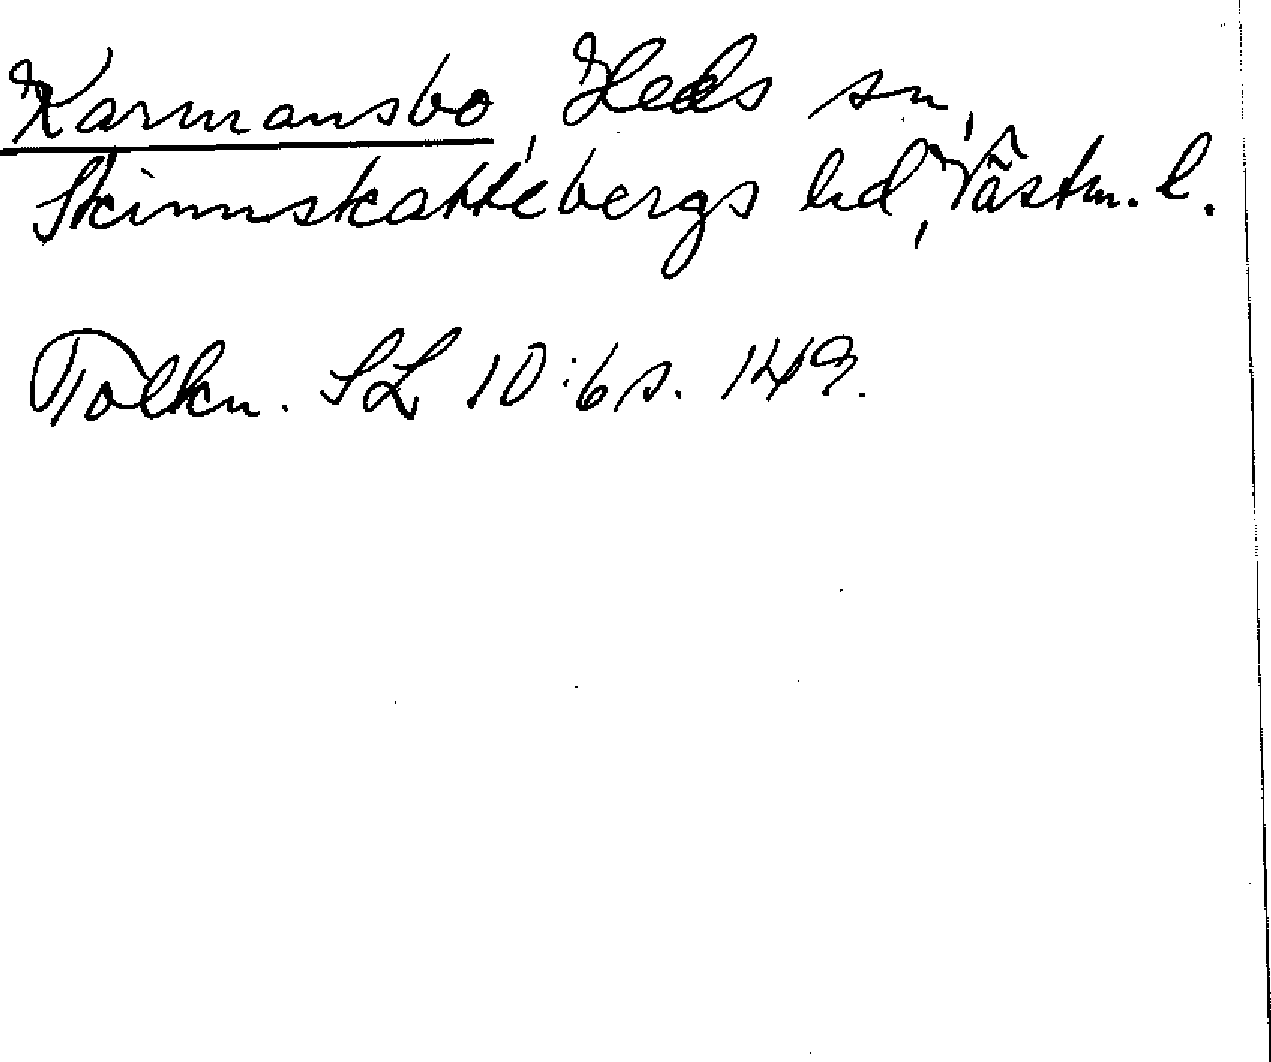 Karmansbo, Heds sn,
Skinnskattebergs hd, Västm. l.
Tolkn. SL 10:6 s. 149.